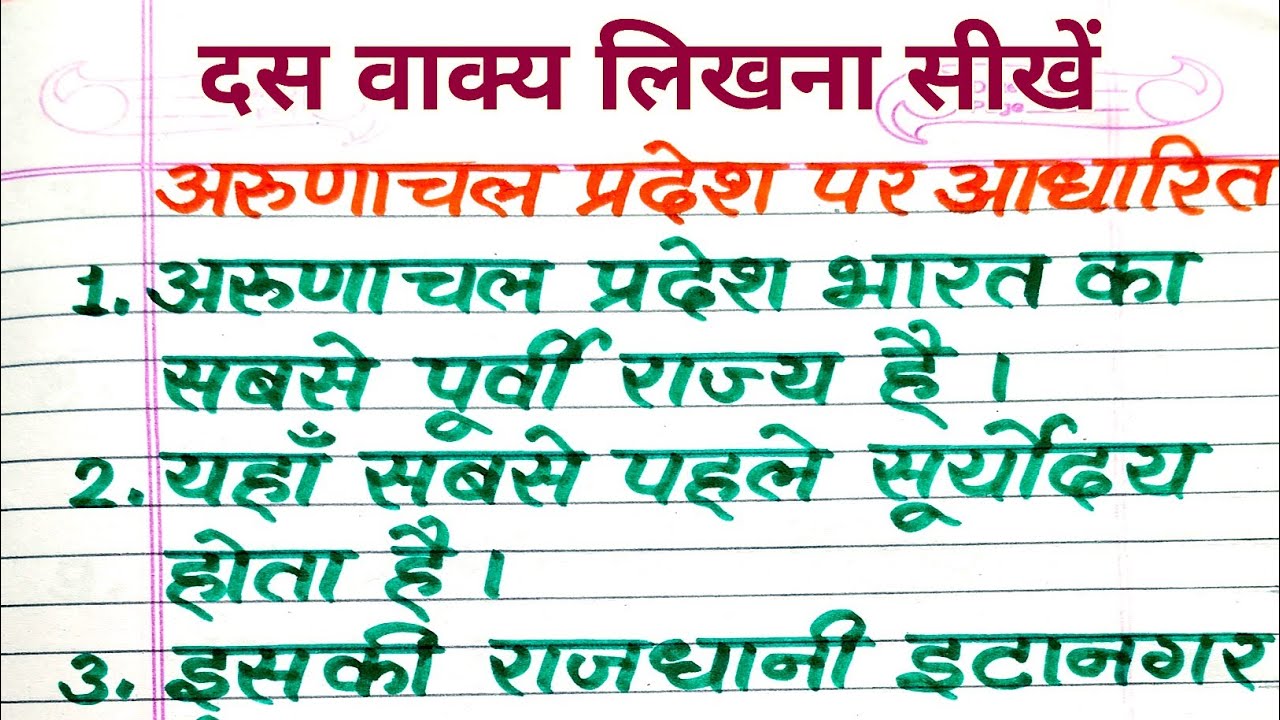 दस वाक्य लिखना सीखें
अरुणाचल प्रदेश पर आधारित
1. अरुणाचल प्रदेश भारत का
सबसे पूर्वी राज्य है ।
2. यहाँ सबसे पहले सूर्योदय
होता है ।
3. इसकी राजधानी इटानगर